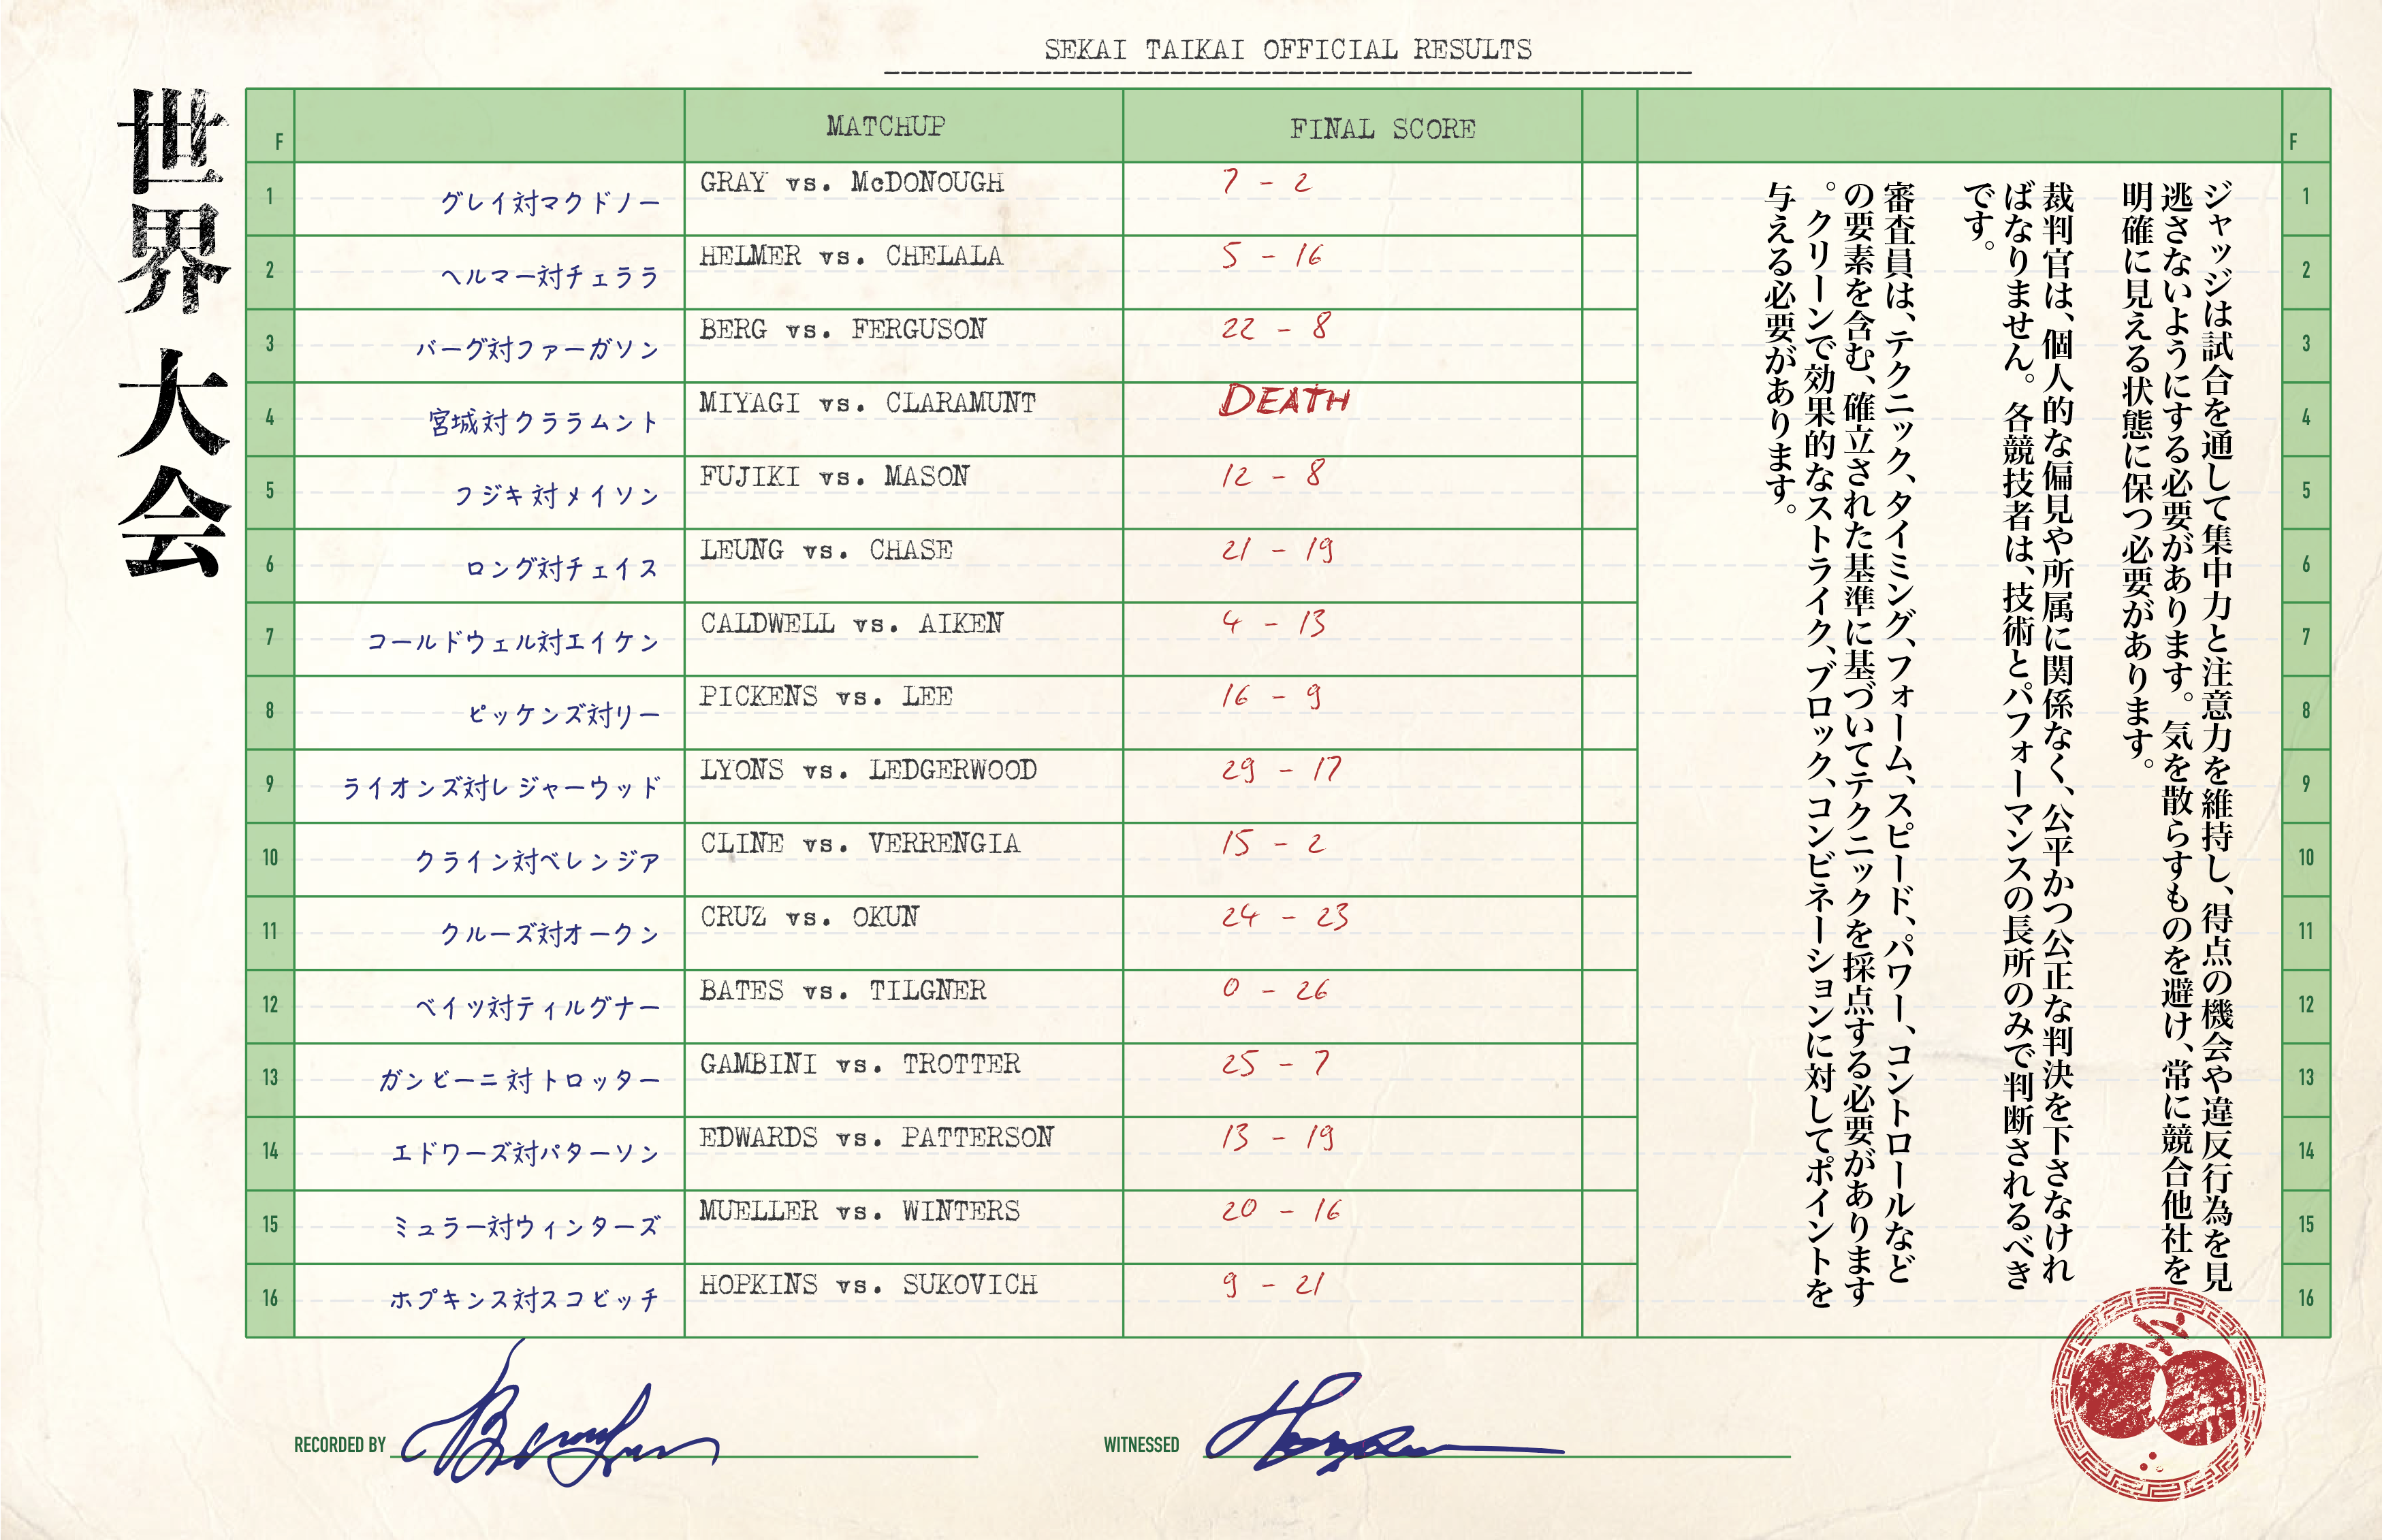 SEKAI TAIKAI OFFICIAL RESULTS
世界大会
F MATCHUP FINAL SCORE F
1 グレイ対マクドノー GRAY vs. McDONOUGH 7 - 2 1
2 ヘルマー対チェララ HELMER vs. CHELALA 5 - 16 2
3 バーグ対ファーガソン BERG vs. FERGUSON 22 - 8 3
4 宮城対クララムント MIYAGI vs. CLARAMUNT DEATH 4
5 フジキ対メイソン FUJIKI vs. MASON 12 - 8 5
6 ロング対チェイス LEUNG vs. CHASE 21 - 19 6
7 コールドウェル対エイケン CALDWELL vs. AIKEN 4 - 13 7
8 ピッケンズ対リー PICKENS vs. LEE 16 - 9 8
9 ライオンズ対レジャーウッド LYONS vs. LEDGERWOOD 29 - 17 9
10 クライン対ベレンジア CLINE vs. VERRENGIA 15 - 2 10
11 クルーズ対オークン CRUZ vs. OKUN 24 - 23 11
12 ベイツ対ティルグナー BATES vs. TILGNER 0 - 26 12
13 ガンビーニ対トロッター GAMBINI vs. TROTTER 25 - 7 13
14 エドワーズ対パターソン EDWARDS vs. PATTERSON 13 - 19 14
15 ミュラー対ウィンターズ MUELLER vs. WINTERS 20 - 16 15
16 ホプキンス対スコビッチ HOPKINS vs. SUKOVICH 9 - 21 16
ジャッジは試合を通して集中力と注意力を維持し、得点の機会や違反行為を見
逃さないようにする必要があります。気を散らすものを避け、常に競合他社を
明確に見える状態に保つ必要があります。
裁判官は、個人的な偏見や所属に関係なく、公平かつ公正な判決を下さなけれ
ばなりません。各競技者は、技術とパフォーマンスの長所のみで判断されるべき
です。
審査員は、テクニック、タイミング、フォーム、スピード、パワー、コントロールなど
の要素を含む、確立された基準に基づいてテクニックを採点する必要があります
。クリーンで効果的なストライク、ブロック、コンビネーションに対してポイントを
与える必要があります。
RECORDED BY
WITNESSED